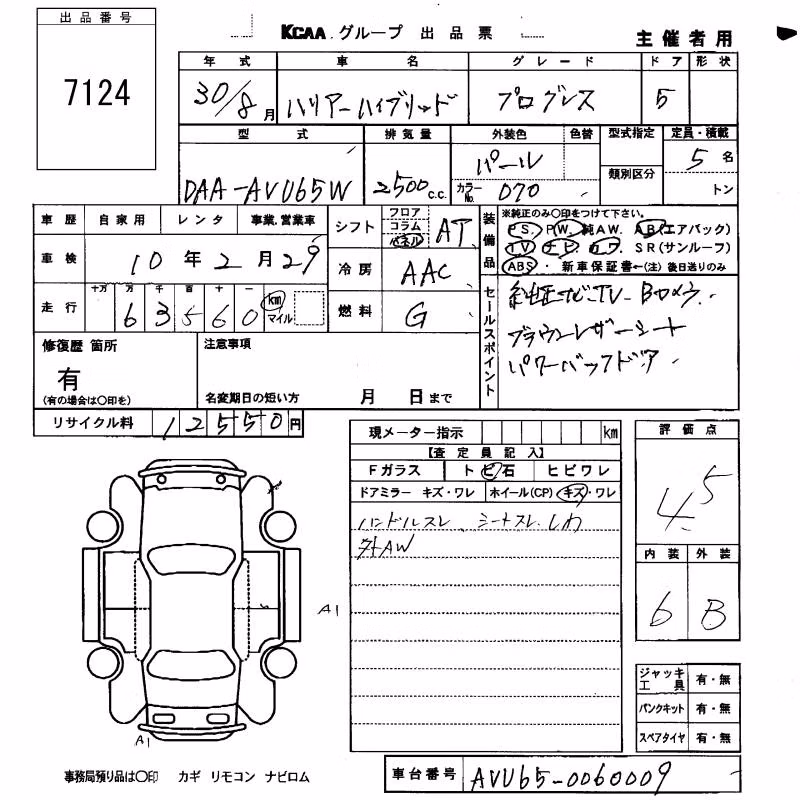 出品番号
7124
KCAA グループ 出品票
主催者用
年式 車名 グレード ドア 形状
30/8月 ハリアーハイブリッド プログレス 5
型式 排気量 外装色 色替 型式指定 定員・積載
類別区分
DAA-AVU65W 2500 c.c. パール カラーNo. 070 5名
トン
車歴 自家用 レンタ 事業.営業車
車検 10年2月29
走行 十万 万 千 百 十 一
63560 km マイル
シフト フロア コラム パネル AT
冷房 AAC
燃料 G
装備品
※純正のみ〇印をつけて下さい。
PS. PW. 純AW. AB(エアバック)
TV ナビ. カワ. SR(サンルーフ)
ABS ・ 新車保証書←(注) 後日送りのみ
セールスポイント
純正ナビ.TV. Bカメラ.
ブラウンレザーシート
パワーバックドア.
修復歴 箇所
有
(有の場合は〇印を)
注意事項
名変期日の短い方 月 日まで
リサイクル料 12550円
現メーター指示 km
【査定員記入】
Fガラス トビ石 ヒビワレ
ドアミラー キズ・ワレ ホイール(CP) キズ・ワレ
ハンドルスレ、シートスレ.しわ
外AW
評価点
4.5
内装 外装
6 B
A1
A1
ジャッキ工具 有・無
パンクキット 有・無
スペアタイヤ 有・無
事務局預り品は〇印 カギ リモコン ナビロム
車台番号 AVU65-0060009